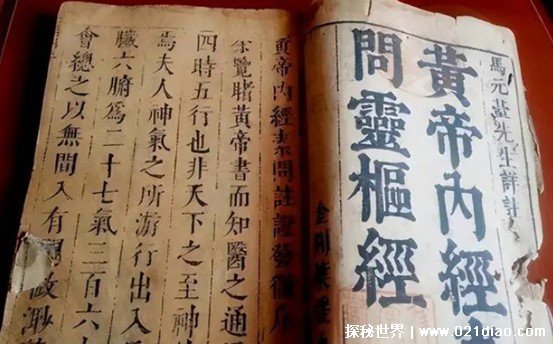 馬元臺先生詳註
黃帝內經
問靈樞經
黃帝內經素問註證發微序
余覽睹黃帝書而知醫之通
四時五行也非天下之至神
焉夫人神氣之所游行出入
臟六腑爲二十七氣三百六
會總之以無間入有
探秘世界 | www.021diao.com